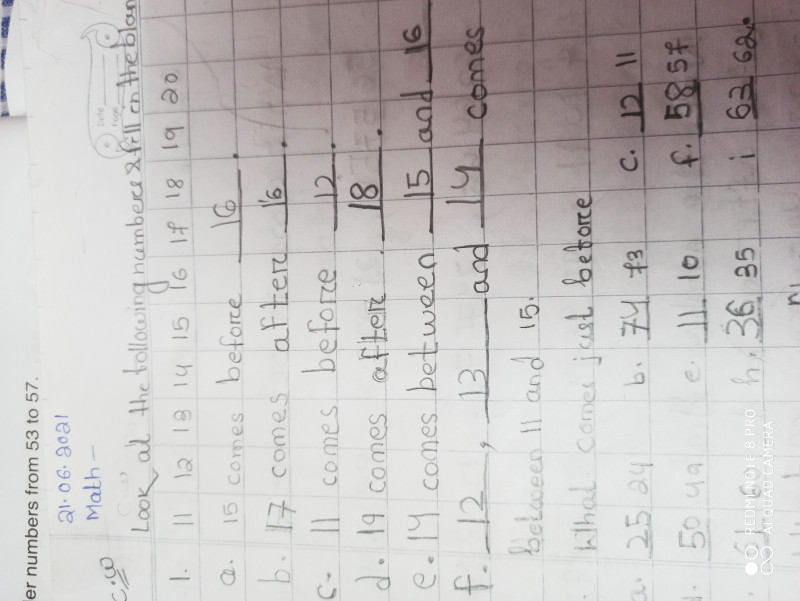 der numbers from 53 to 57.
21.06.2021
Math -
C.W
Date
Page
Look at the following numbers & fill in the blan
1. 11 12 13 14 15 16 17 18 19 20
a. 15 comes before 16.
b. 17 comes after 16.
c. 11 comes before 12.
d. 19 comes after 18.
e. 14 comes between 15 and 16
f. 12, 13 and 14 comes
between 11 and 15.
What comes just before
a. 25 24 b. 74 73 c. 12 11
d. 50 49 e. 11 10 f. 58 57
h. 36 35 i 63 62.
REDMI NOTE 8 PRO
AI QUAD CAMERA